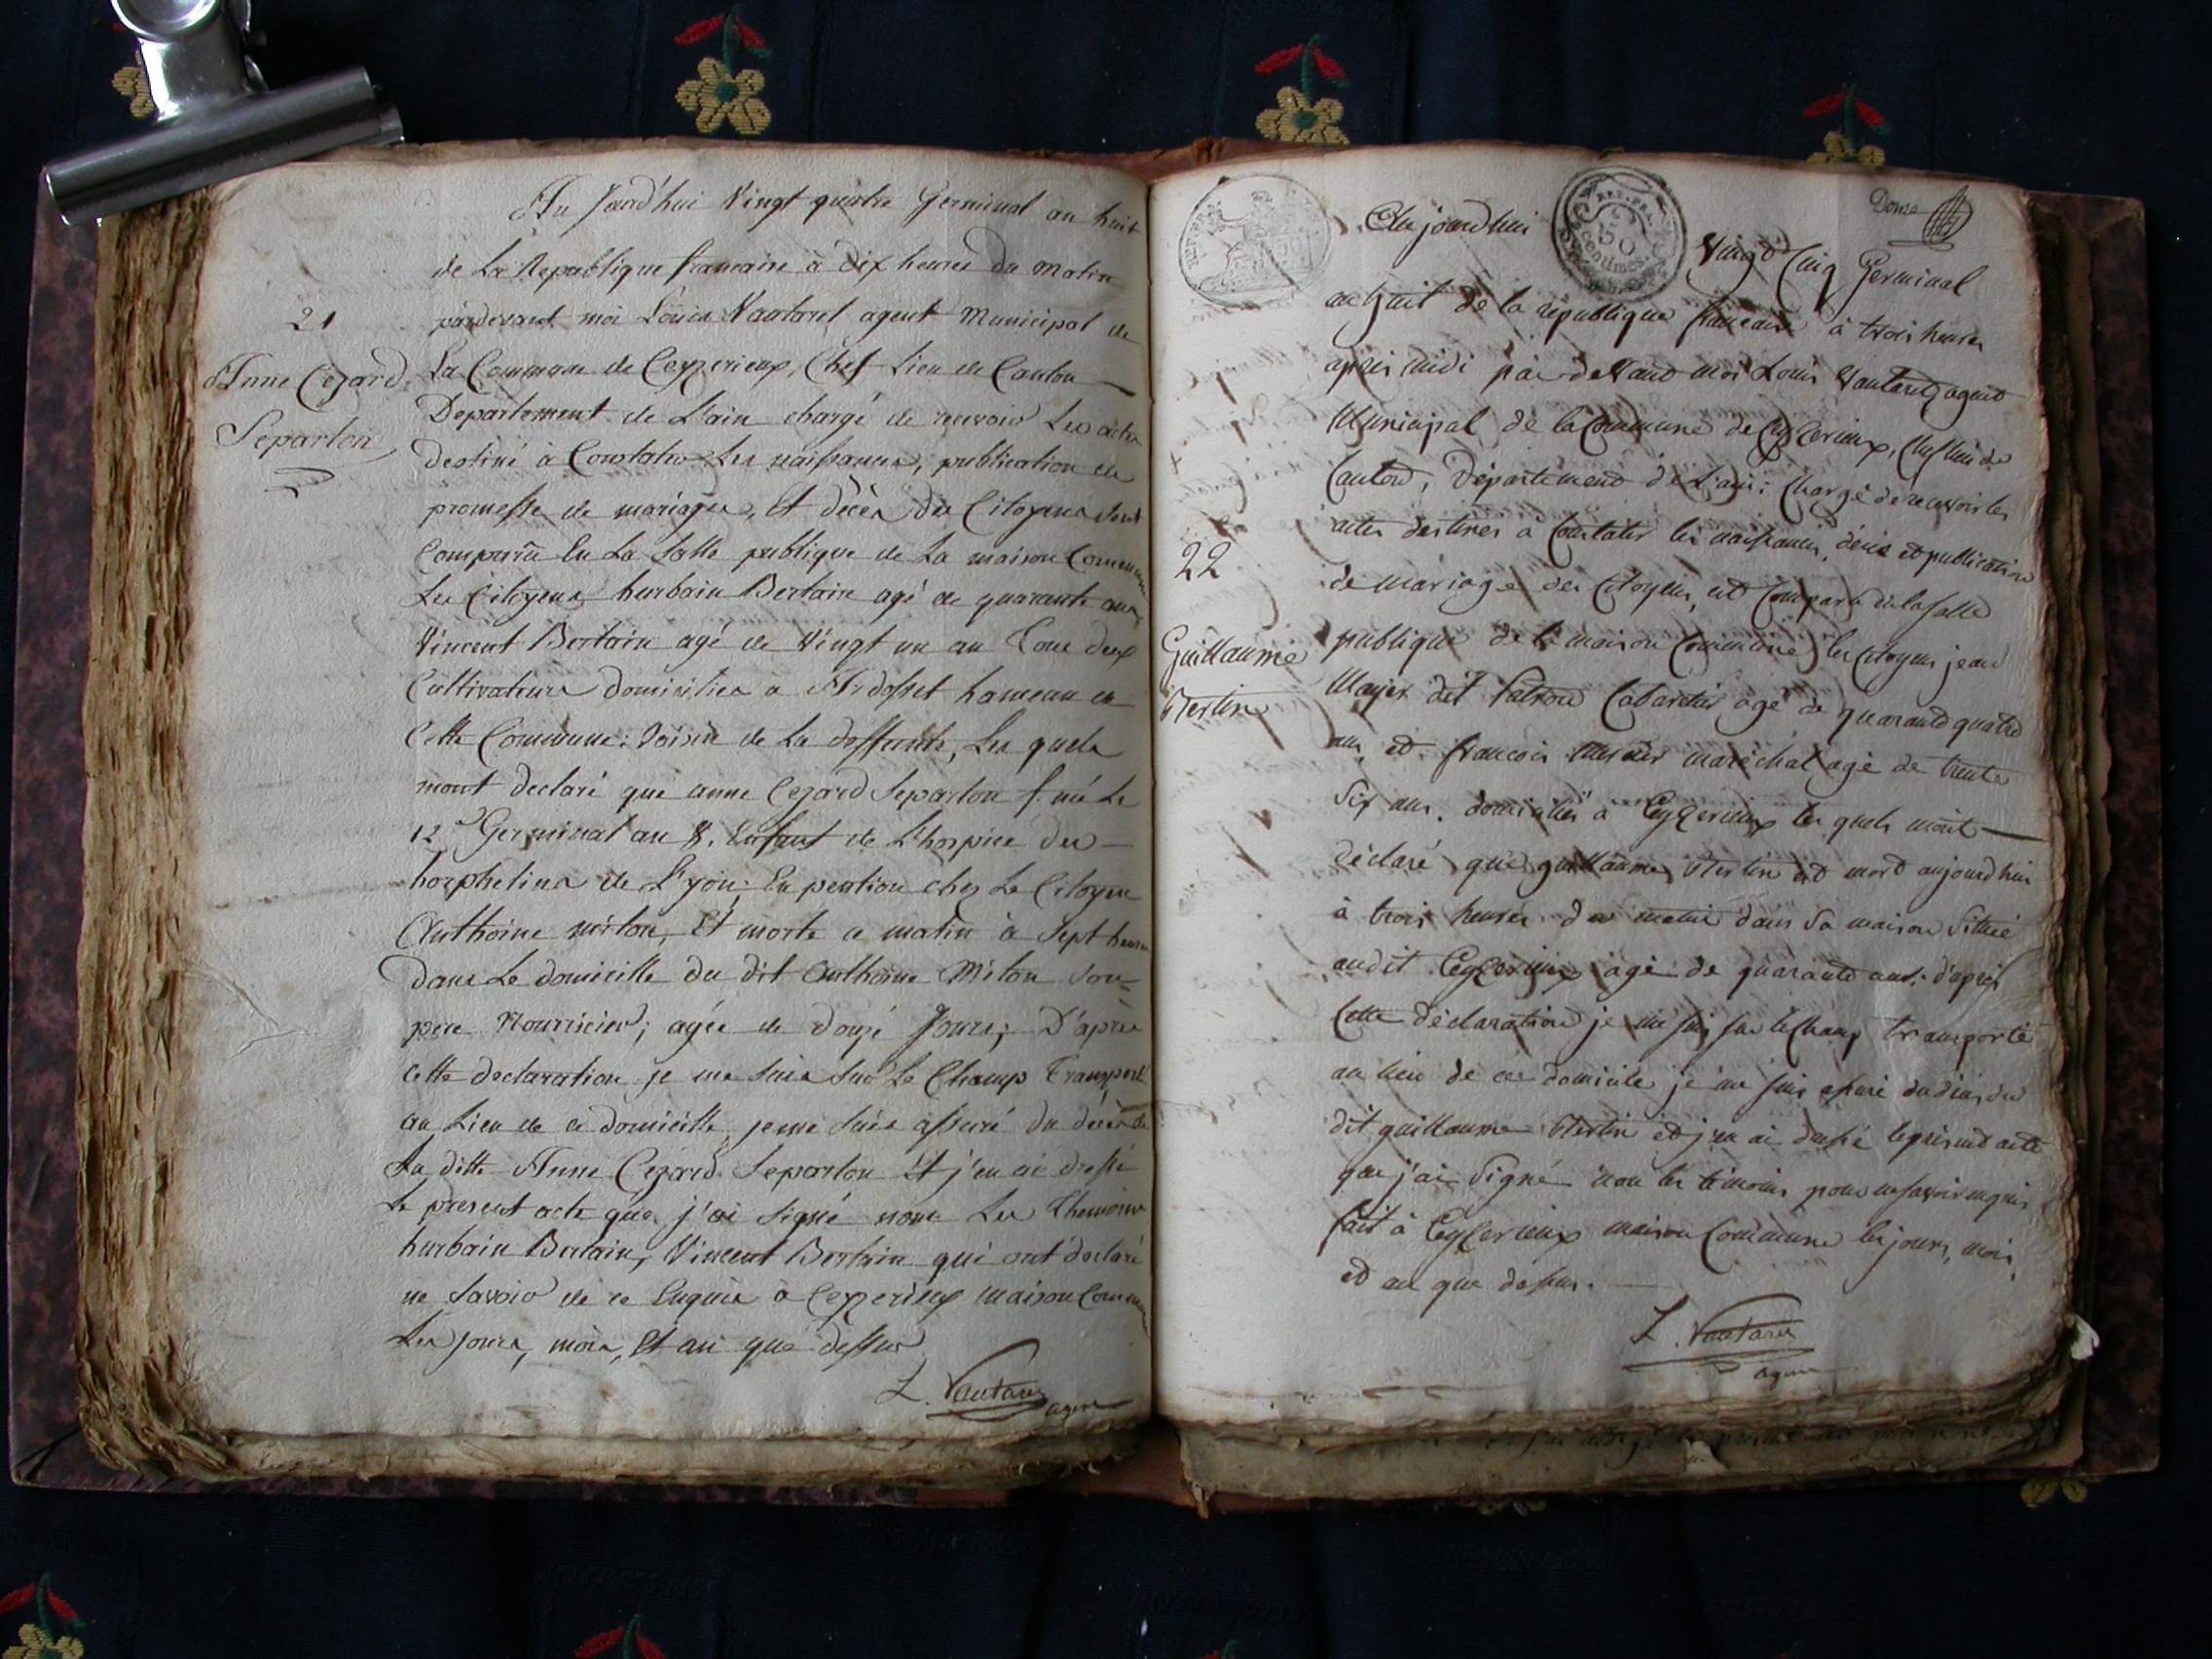 21
Anne Cezard
Séparton
Au Jourd'hui Vingt quatre Germinal an huit
de La Republique francaise à dix heures du matin
pardevant moi Louis Vautaret agent Municipal de
La Commune de Ceyzerieux, Chef-Lieu de Canton
Departement de L'ain chargé de recevoir Les actes
destiné à Constater Les naissances, publication de
promesse de mariages, Et décès des Citoyens sont
Comparus En La Salle publique de La maison Commune
Les Citoyens hurbain Bertain agé de quarante ans
Vincent Bertain agé de Vingt un an Tous deux
Cultivateurs domiciliés à Ardosset hameau de
Cette Commune: Voisin de La deffunte, Les quels
mont declaré que anne Cezard Séparton f. née Le
12 Germinal an 8. Enfant de L'hospice des
horphelins de Lyon: En pention chez Le Citoyen
Anthoine miton, Et morte ce matin à Sept heures
dans Le domicille du dit Anthoine Miton Son
pere Nourricier; agée de douze Jours; D'après
cette declaration je me suis sur Le Champ Transporté
au Lieu de ce domicille, je me suis assuré du décès de
La ditte Anne Cezard Séparton Et j'en ai dressé
Le present acte que j'ai signé non Les Themoins
hurbain Bertain, Vincent Bertain qui ont declaré
ne savoir de ce Enquis à Ceyzerieux maison Commune
Les jours, mois, Et an que dessus
L. Vautaret
agent
22
Guillaume
Merlin
REP. FRA.
50
centimes
Douze
Aujourdhui Vingt Cinq Germinal
an huit de la république francaise à trois heures
après midi par devant moi Louis Vautaret agent
Municipal de la Commune de Ceyzerieux, Chef lieu de
Canton, Département de L'ain; Chargé de recevoir les
actes destinés à Constater les naissances, décès et publication
de mariage des citoyens, est comparu en la salle
publique de la maison Commune les citoyens jean
Mayer dit Patron Cabaretier agé de quarante quatre
ans, et francois maréchal agé de trente
Six ans, domiciliés à Ceyzerieux les quels mont
déclaré que guillaume Merlin est mort aujourdhui
à trois heures du matin dans sa maison Située
audit Ceyzerieux agé de quarante ans. d'après
Cette déclaration je me suis sur le Champ transporté
au lieu de ce domicile je me suis assuré du décès du
dit guillaume Merlin et j'en ai dressé le présent acte
que j'ai signé non les témoins pour ne savoir enquis
fait à Ceyzerieux maison Commune les jours, mois,
et an que dessus.
L. Vautaret
agent